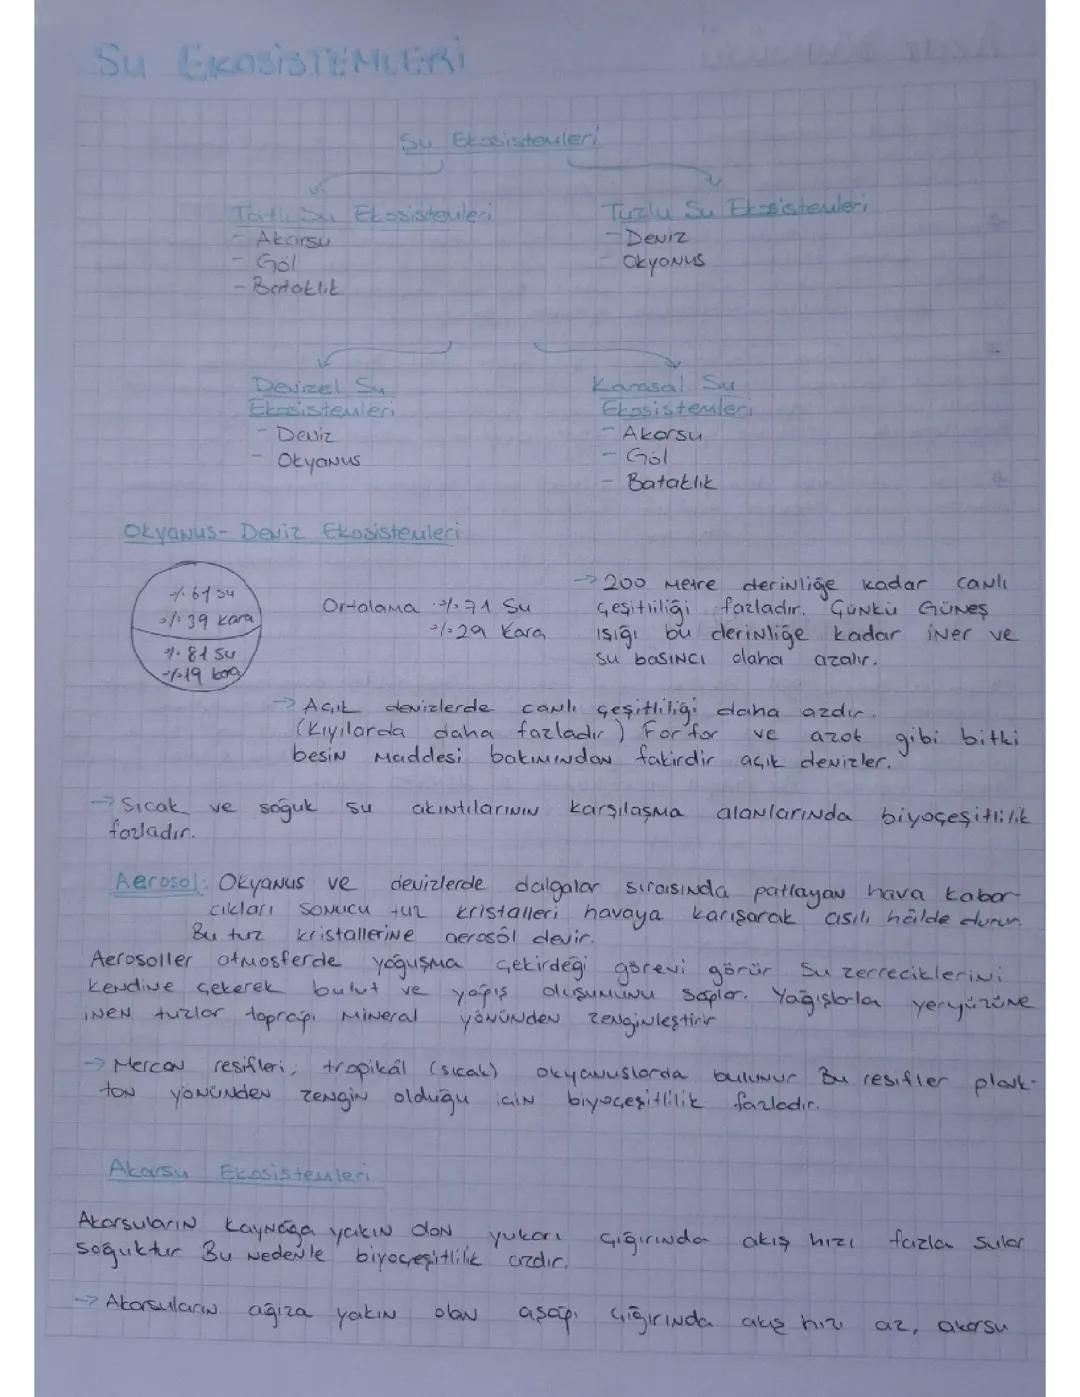 SU EKOSİSTEMLERİ
Su Ekosistemleri
Tatlı Su Ekosistemleri
- Akarsu
- Göl
- Bataklık
Tuzlu Su Ekosistemleri
- Deniz
- Okyanus
Denizel Su
Ekosistemleri
- Deniz
- Okyanus
Karasal Su
Ekosistemleri
- Akarsu
- Göl
- Bataklık
Okyanus - Deniz Ekosistemleri
%61 su
%39 kara
%81 su
%19 kara
Ortalama %71 Su
%29 Kara
→ 200 metre derinliğe kadar canlı
çeşitliliği fazladır. Çünkü Güneş
ışığı bu derinliğe kadar iner ve
su basıncı daha azalır.
→ Açık denizlerde canlı çeşitliliği daha azdır.
(Kıyılarda daha fazladır) Forfor ve azot gibi bitki
besin maddesi bakımından fakirdir açık denizler.
→ Sıcak ve soğuk su akıntılarının karşılaşma alanlarında biyoçeşitlilik
fazladır.
Aerosol: Okyanus ve denizlerde dalgalar sırasında patlayan hava kabar-
cıkları sonucu tuz kristalleri havaya karışarak asılı hâlde durur.
Bu tuz kristallerine aerosöl denir.
Aerosoller atmosferde yoğuşma çekirdeği görevi görür Su zerreciklerini
kendine çekerek bulut ve yağış oluşumunu sağlar. Yağışlarla yeryüzüne
inen tuzlar toprağı mineral yönünden zenginleştirir
→ Mercan resifleri; tropikâl (sıcak) okyanuslarda bulunur Bu resifler plank-
ton yönünden zengin olduğu için biyoçeşitlilik fazladır.
Akarsu Ekosistemleri
Akarsuların kaynağa yakın olan yukarı çığırında akış hızı fazla sular
soğuktur Bu nedenle biyoçeşitlilik azdır.
→ Akarsuların ağıza yakın olan aşağı çığırında akış hızı az, akarsu